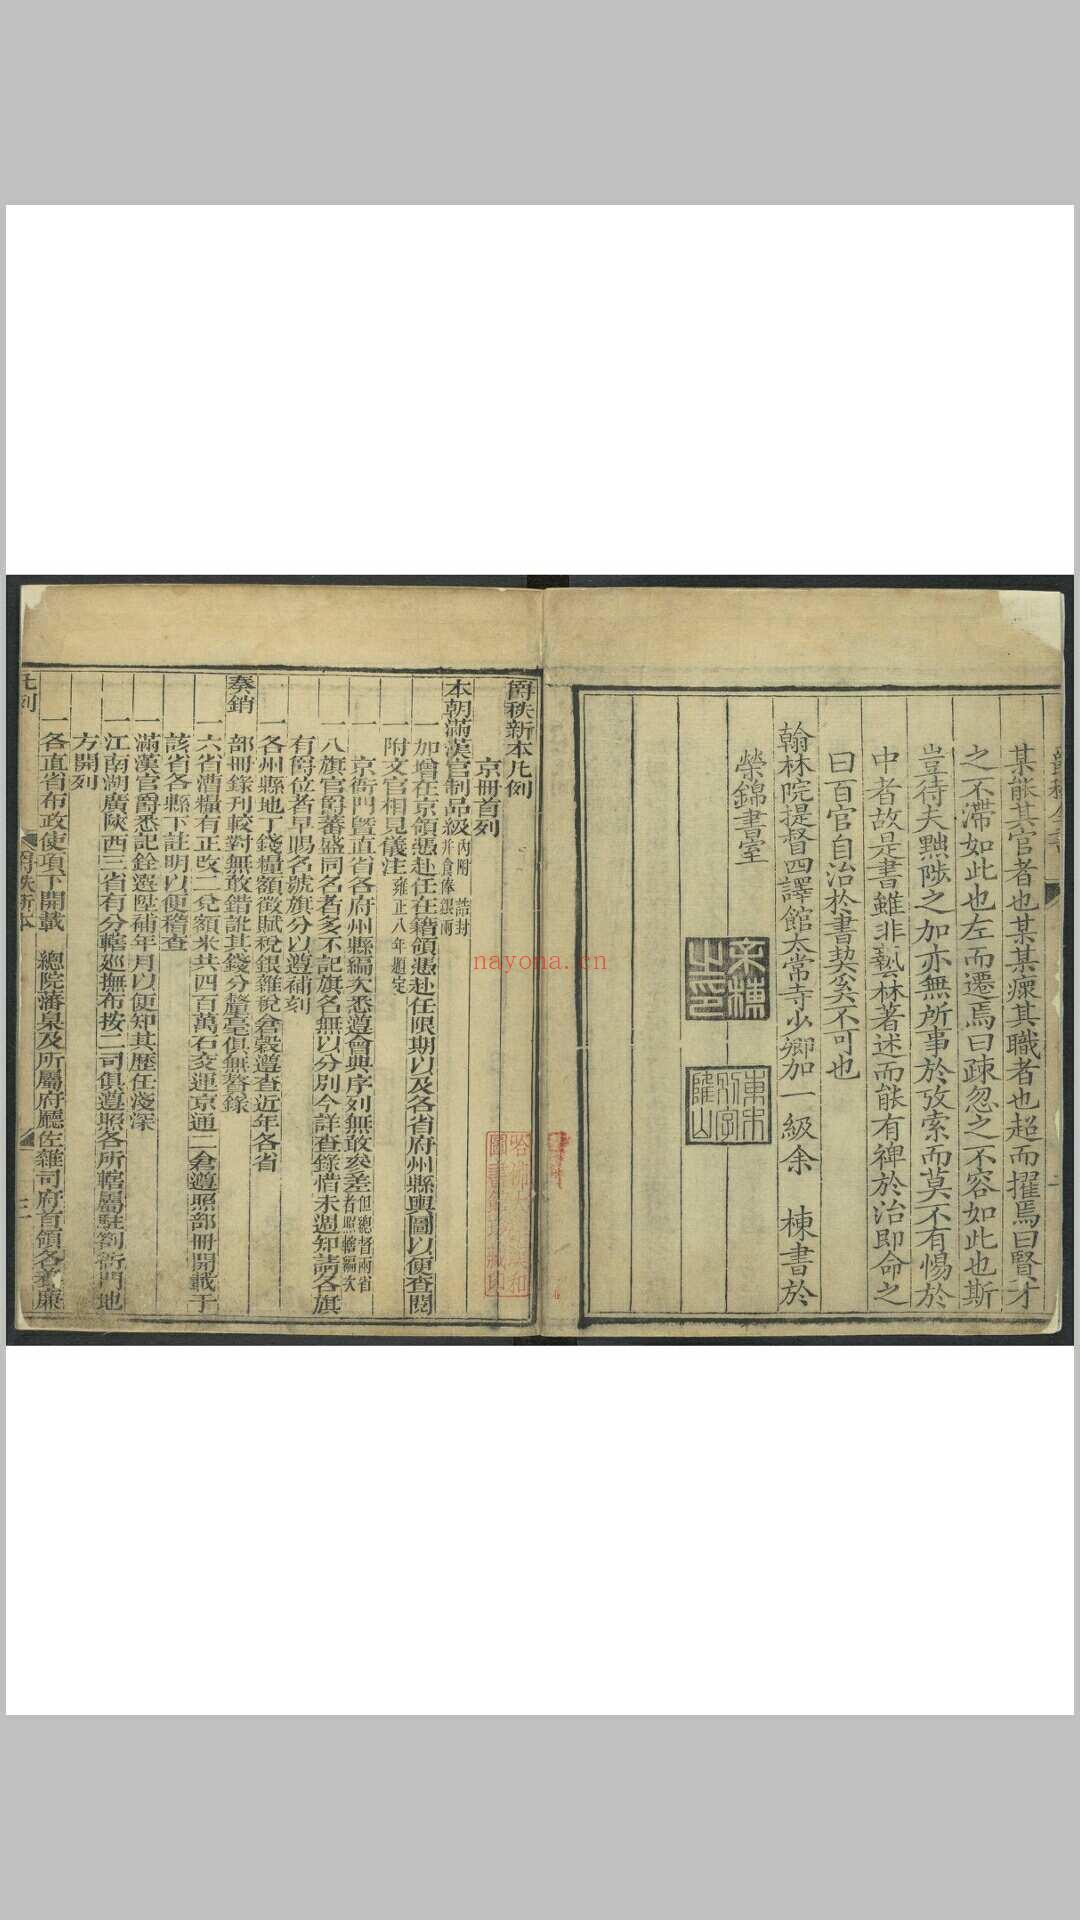 某能其官者也某某瘝其職者也超而擢焉曰賢才
之不滯如此也左而遷焉曰疎忽之不容如此也斯
豈待夫黜陟之加亦無所事於攷索而莫不有惕於
中者故是書雖非藝林著述而能有裨於治即命之
曰百官自治於書契奚不可也
翰林院提督四譯館太常寺少卿加一級余 棟書於
榮錦書室
余棟之印
爵秩新本凡例
京冊首列
本朝滿漢官制品級內附誥封并食俸銀兩
一加增在京領憑赴任在籍領憑赴任限期以及各省府州縣輿圖以便查閱
附文官相見儀注雍正八年題定
一京衙門暨直省各府州縣編次悉遵會典序列無敢參差但總督兩省者照轄編次
一八旗官爵蕃盛同名者多不記旗名無以分別今詳查錄惜未週知請各旗
有爵位者早賜名號旗分以遵補刻
一各州縣地丁錢糧額徵賦稅銀雜稅倉穀遵查近年各省
奏銷
部冊錄刊較對無敢錯訛其錢分釐毫俱無瞀錄
一六省漕糧有正改二兌額米共四百萬石交運京通二倉遵照部冊開載于
該省各縣下註明以便稽查
一滿漢官爵悉記銓選陞補年月以便知其歷任淺深
一江南湖廣陝西三省有分轄巡撫布按二司俱遵照各所轄屬駐劄衙門地
方開列
一各直省布政使項下開載 總院藩臬及所屬府廳佐雜司府首領各養廉
凡例
爵秩新本
三
哈佛大學漢和
圖書館珍藏印
nayona.cn